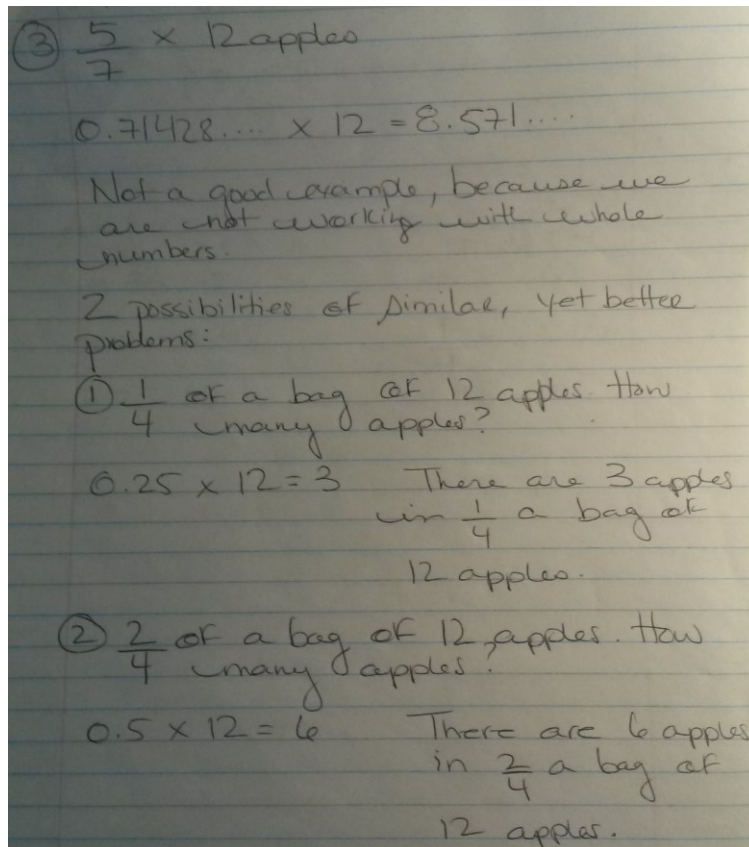 ③ 5/7 × 12 apples
0.71428.... × 12 = 8.571....
Not a good example, because we
are not working with whole
numbers.
2 possibilities of similar, yet better
problems:
① 1/4 of a bag of 12 apples. How
many apples?
0.25 × 12 = 3 There are 3 apples
in 1/4 a bag of
12 apples.
② 2/4 of a bag of 12 apples. How
many apples?
0.5 × 12 = 6 There are 6 apples
in 2/4 a bag of
12 apples.